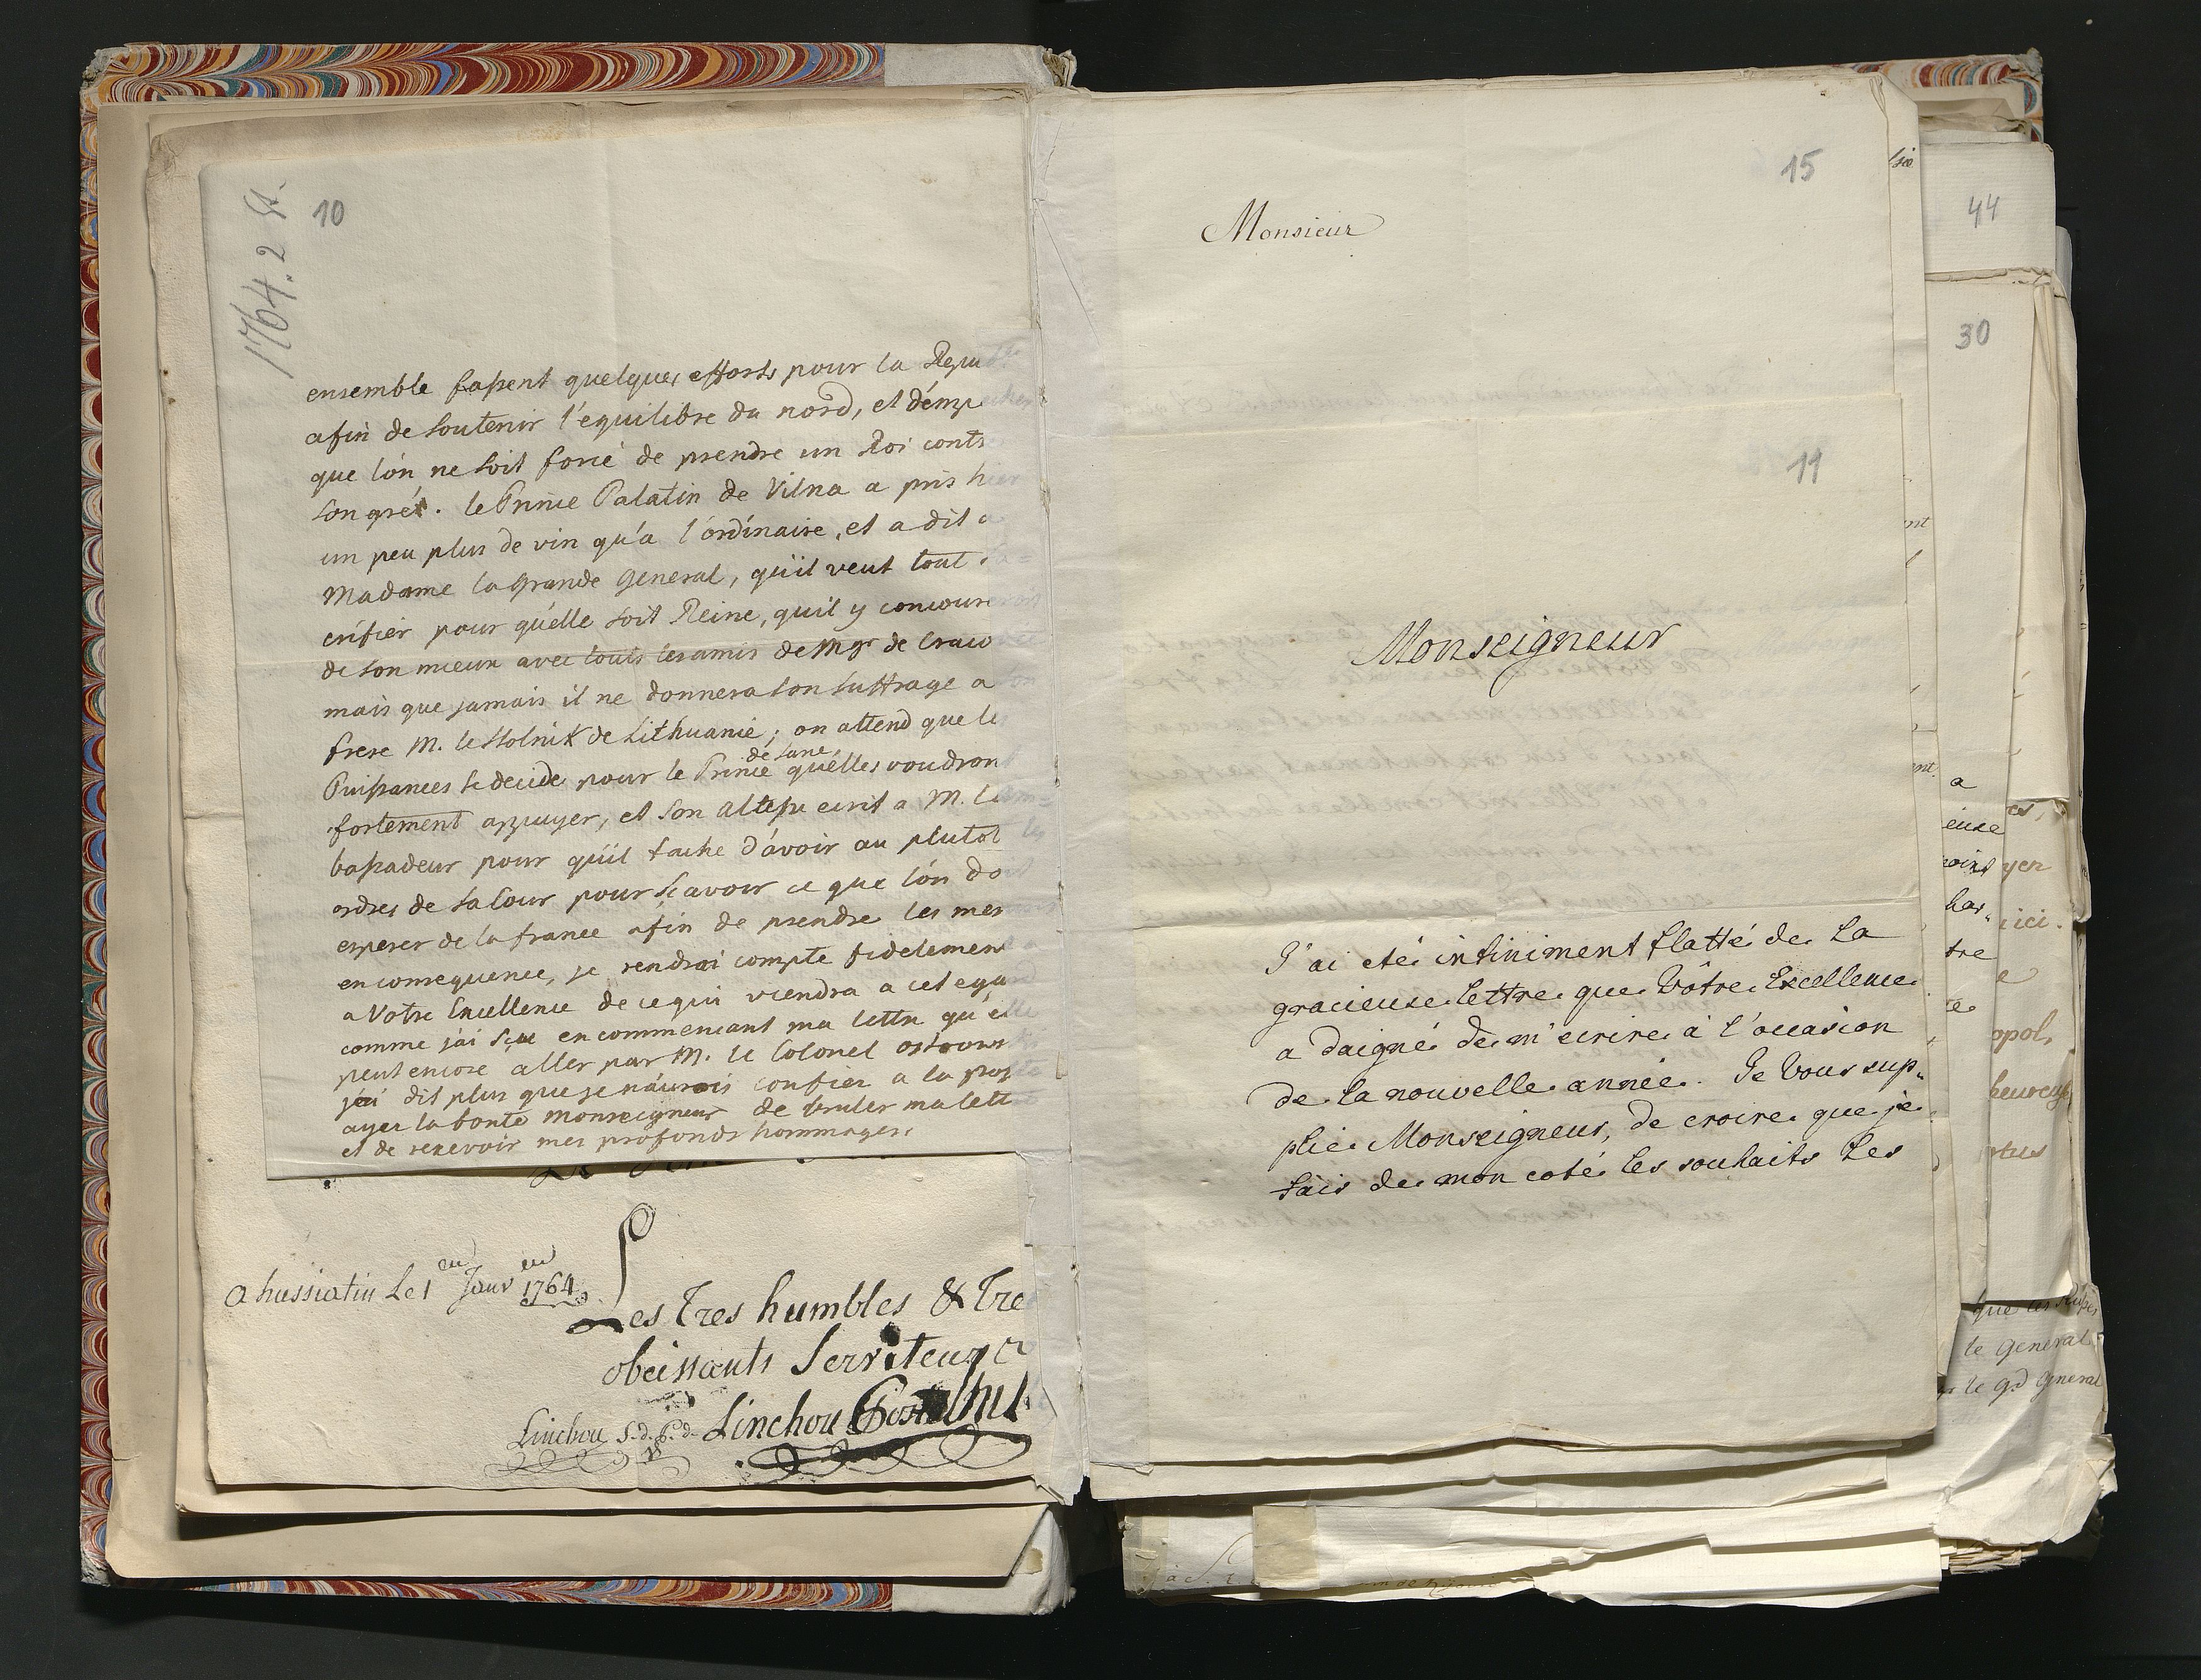 1764. 2 St.
10
ensemble fassent quelques efforts pour la Repu
afin de soutenir l'equilibre du nord, et d'émp
que l'ón ne soit forcé de prendre un Roi contr
son gré. le Prince Palatin de Vilna a pris hier
un peu plus de vin qu'a l'ordinaire, et a dit a
Madame la grande General, qu'il veut tout sa=
crifier pour qu'elle soit Reine, qu'il y concourerons
de son mieux avec touts les amis de Mgr de Craco
mais que jamais il ne donnera son suffrage a son
frere M. le Stolnik de Lithuanie; on attend que le
de sane
Puissances se decide pour le Prince qu'élles voudront
fortement appuyer, et son altesse ecrit a M. l'am=
bassadeur pour qu'il tache d'ávoir au plutot les
ordres de sa Cour pour sçavoir ce que l'ón doit
esperer de la france afin de prendre les mes
en consequence, je rendrai compte fidelement
a Votre Excellence de ce qui viendra a cet ega
comme j'ai sçue en commencant ma lettre qu'élle
peut encore aller par M. le Colonel
j'ai dit plus que je n'áurois confier a la poste
ayez la bonté monseigneur de bruler ma lett
et de recevoir mes profonds hommages.
a hussiatin Le 1er Janv ier 1764
Les Tres humbles & Tre
obeissants Serviteurs
Linchou S. d. P. d.
Linchou
15
Monsieur
11
Monseigneur
J'ai eté infiniment flatté de La
gracieuse lettre que Vôtre Excellence
a daigné de m'ecrire à l'occasion
de la nouvelle année. Je Vous sup„
plie Monseigneur, de croire que je
fais de mon coté les souhaits les
44
30
nt
ent.
a
euse
oint
har„
tre
es,
yer
ici.
e
opol,
heureuse
rtus
que les Russes
le General
le gd General